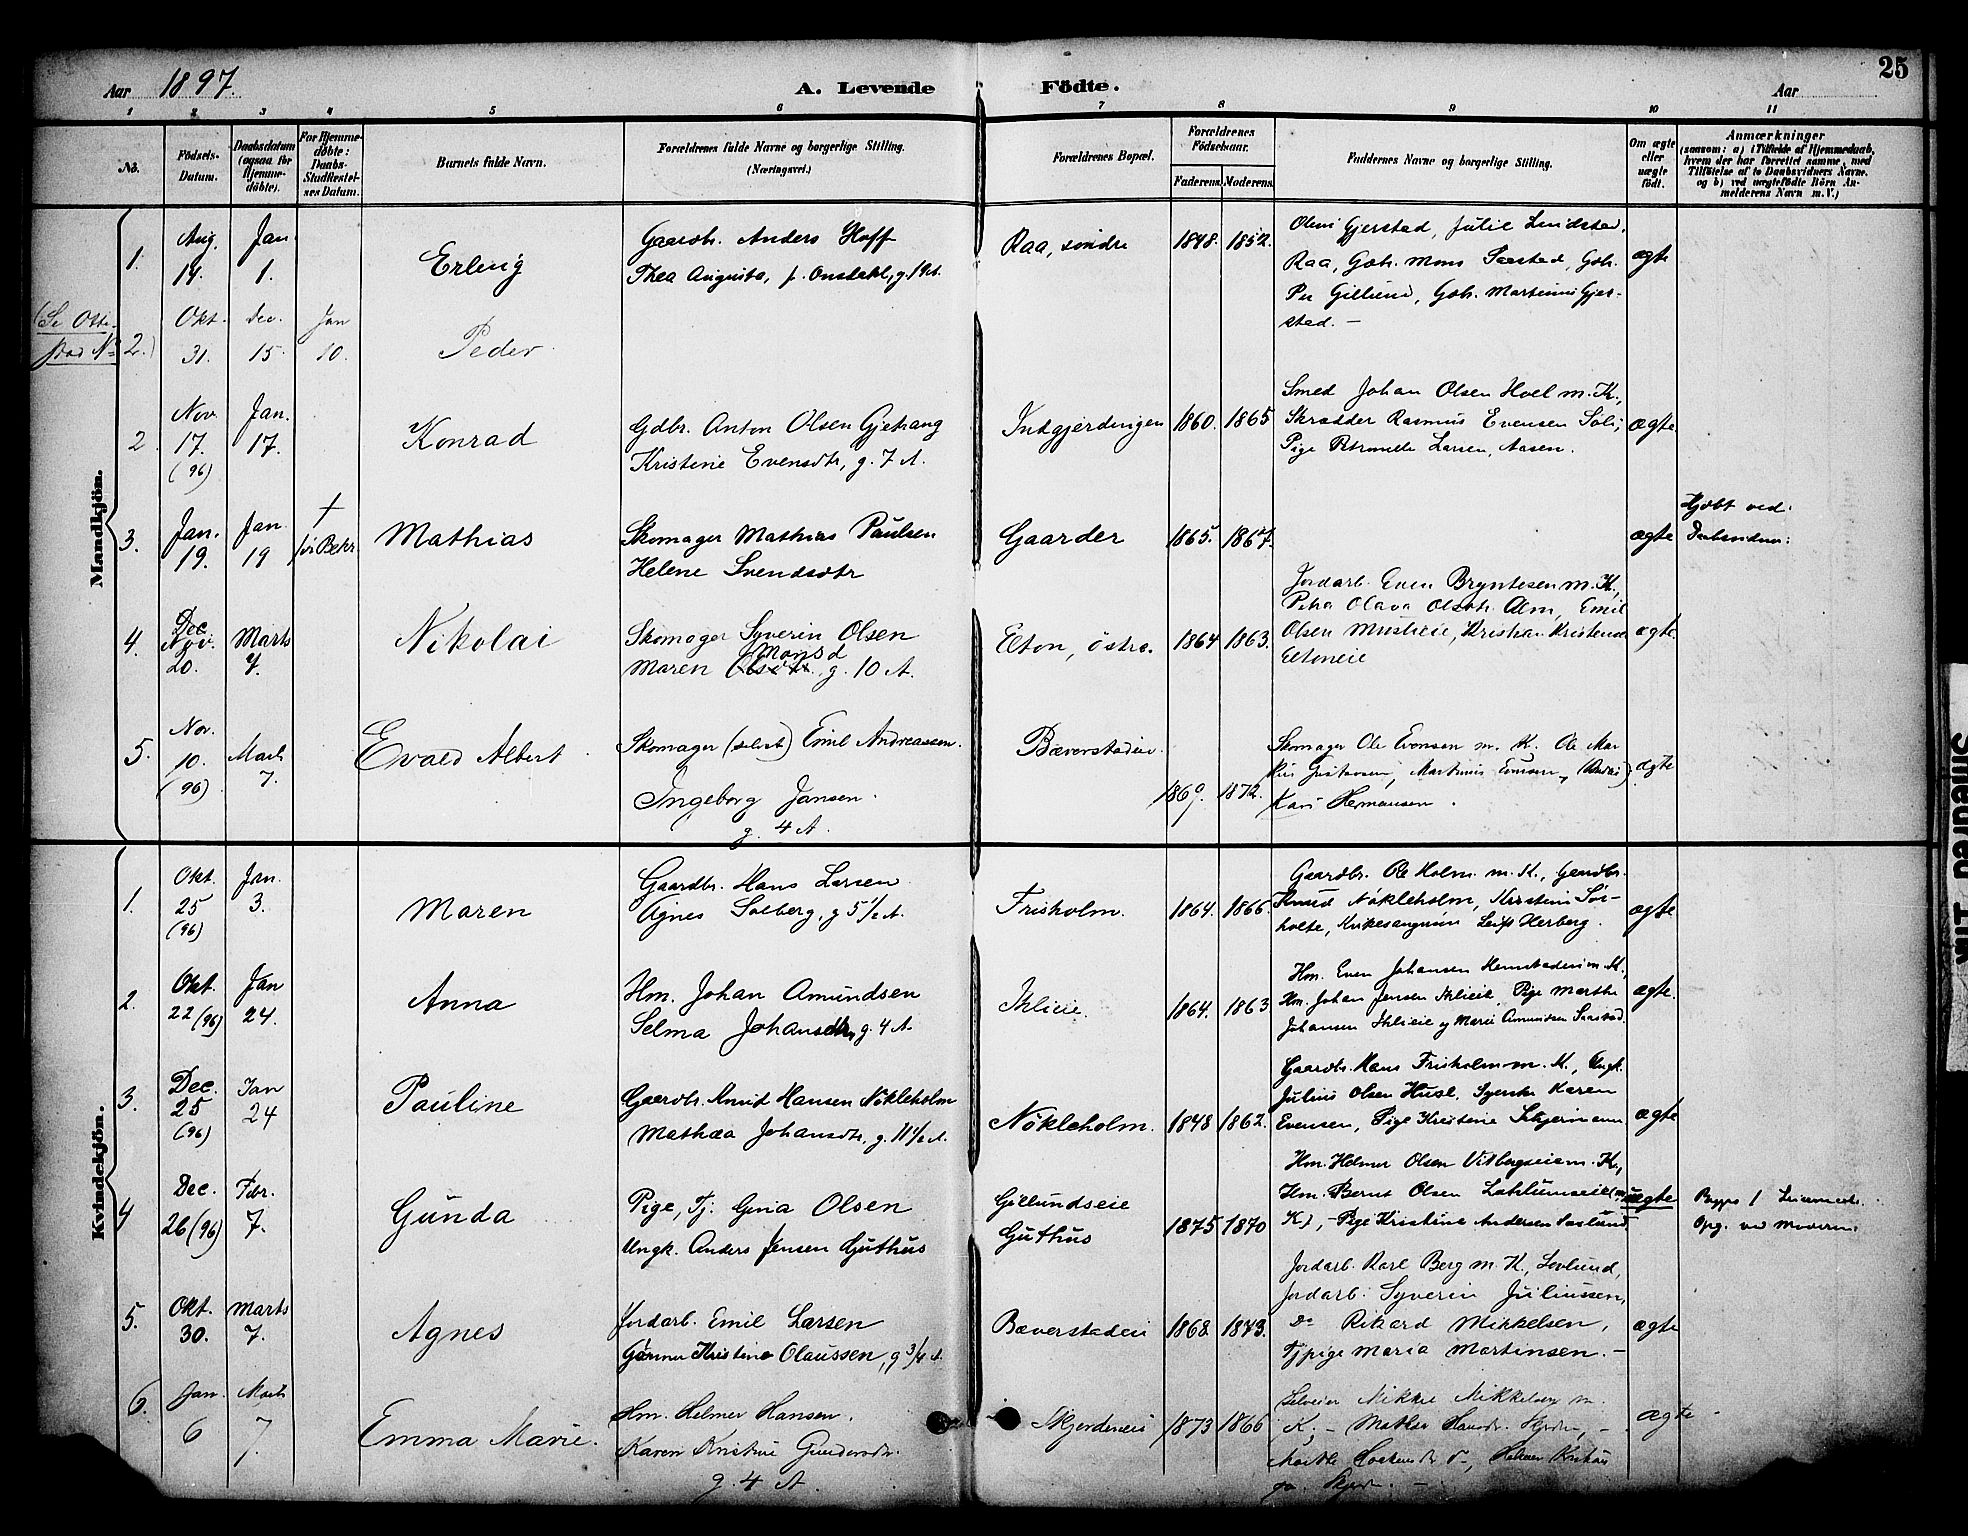 Aar 1897.
A. Levende Födte.
Aar
25
1 2 3 4 5 6 7 8 9 10 11
No.
Födsels-Datum.
Daabsdatum (ogsaa for Hjemme-döbte).
For Hjemme-döbte: Daabs-Stadfæstel-ses Datum.
Barnets fulde Navn.
Forældrenes fulde Navne og borgerlige Stilling. (Næringsvei.)
Forældrenes Bopæl.
Forældrenes Födselsaar.
Faderens. Moderens.
Faddernes Navne og borgerlige Stilling.
Om ægte eller uægte födt.
Anmærkninger
(saasom: a) i Tilfælde af Hjemmedaab, hvem der har forrettet samme, med Tilföielse af to Daabsvidners Navne, og b) ved uægtefödte Börn An-melderens Navn m. V.)
Mandkjön.
1. Aug. 14. Jan. 1. Erling
Gaardbr. Anders Hoff
Thea Augusta, f. Onsdahl, g. 19 A.
Raa, söndre 1848. 1852.
Gjerstad, Julie Lindstad,
Raa, Gbr. Mons Saxstad, Gbr.
Per Gillund, Gbr. Martinus Gjer-
stad. –
ægte
(Se Otte-
stad No 2.)
Okt. 31. Dec. 15. Jan 10. Peder.
2. Nov. 17. (96) Jan. 17. Konrad
Gdbr. Anton Olsen Gjetvang
Kristine Evensdtr, g. 7 A.
Indgjerdingen 1860. 1865
Smed Johan Olsen Hoel m. K.,
Skrædder Rasmus Evensen
Pige Petronelle Larsen, Aasen.
ægte
3. Jan. 19. Jan 19 † Mathias
Skomager Mathias Paulsen
Helene Svendsdtr
Gaarder 1865. 1867.
ægte
Hjdbt ved
4. Dec Nov. 20. Marts 7. Nikolai
Skomager Syverin Olsen
Maren Olsdtr. Monsd g. 10 A.
Elton, östre. 1864 1863.
Jordarb. Even Bryntesen m. K.,
Petra Olava Olsdtr. Alm, Emil
Olsen Kristian Kristensen
Eltoneie
ægte
5. Nov. 10. (96) Marts 7. Evald Albert
Skomager Emil Andreassen.
Ingeborg Jansen.
g. 4 A.
Bæverstadeie. 1869. 1872.
Skomager Ole Evensen m. K. Ole Mar-
Martinus
Kari Hermansen.
ægte
Kvindekjön.
1. Okt. 25 (96) Jan. 3. Maren
Gaardbr. Hans Larsen
Agnes Solberg, g 5 1/2 A.
Frisholm. 1864. 1866.
Gaardbr. Ole Holm m. K., Gaardbr.
Knud Nökleholm, Kristine Sör-
holte, Kirkesanger Herberg.
ægte
2. Okt. 22 (96) Jan 24. Anna
Hm. Johan Amundsen
Selma Johansdtr, g. 4 A.
Ihlieie. 1864. 1863
Hm. Even Johansen m. K.,
Hm. Johan Jensen Ihlieie, Pige Marthe
Johansen Ihlieie og Marie Amundsen
ægte.
3. Dec. 25 (96) Jan 24 Pauline
Gaardbr. Hansen Nökleholm
Mathea Johansdtr, g. 11 1/2 A.
Nökleholm. 1848 1862.
Gaardbr. Hans Frisholm m. K., Ungk.
Julius Olsen Huse, Syerske Karen
Evensen, Pige Kristine
ægte
4 Dec. 26 (96) Febr. 7. Gunda
Pige, Tj. Gina Olsen
Ungk. Anders Jensen Guthus
Gillundseie
Guthus 1875 1870
Hm. Helmer Olsen Vitbergseie m. K.,
Hm. Bernt Olsen (m.
K), – Pige Kristine Andersen
uægte
Opg. ved Moderen.
5. Okt. 30. Marts 7. Agnes
Jordarb. Emil Larsen
Kristine Olaussen, g 3/4 A.
Bæverstadeie 1868 1873.
Jordarb. Karl Berg m. K., Lovlund,
Jordarb. Syverin Juliussen,
Do Rikard Mikkelsen,
Tjpige Maria Martinsen. –
ægte
6. Jan. 6 Marts 7. Emma Marie.
Hm. Helmer Hansen.
Karen Kristine Gundersdtr.
g. 4 A.
1873 1866
Selveier Mikkel m.
K, –
ægte